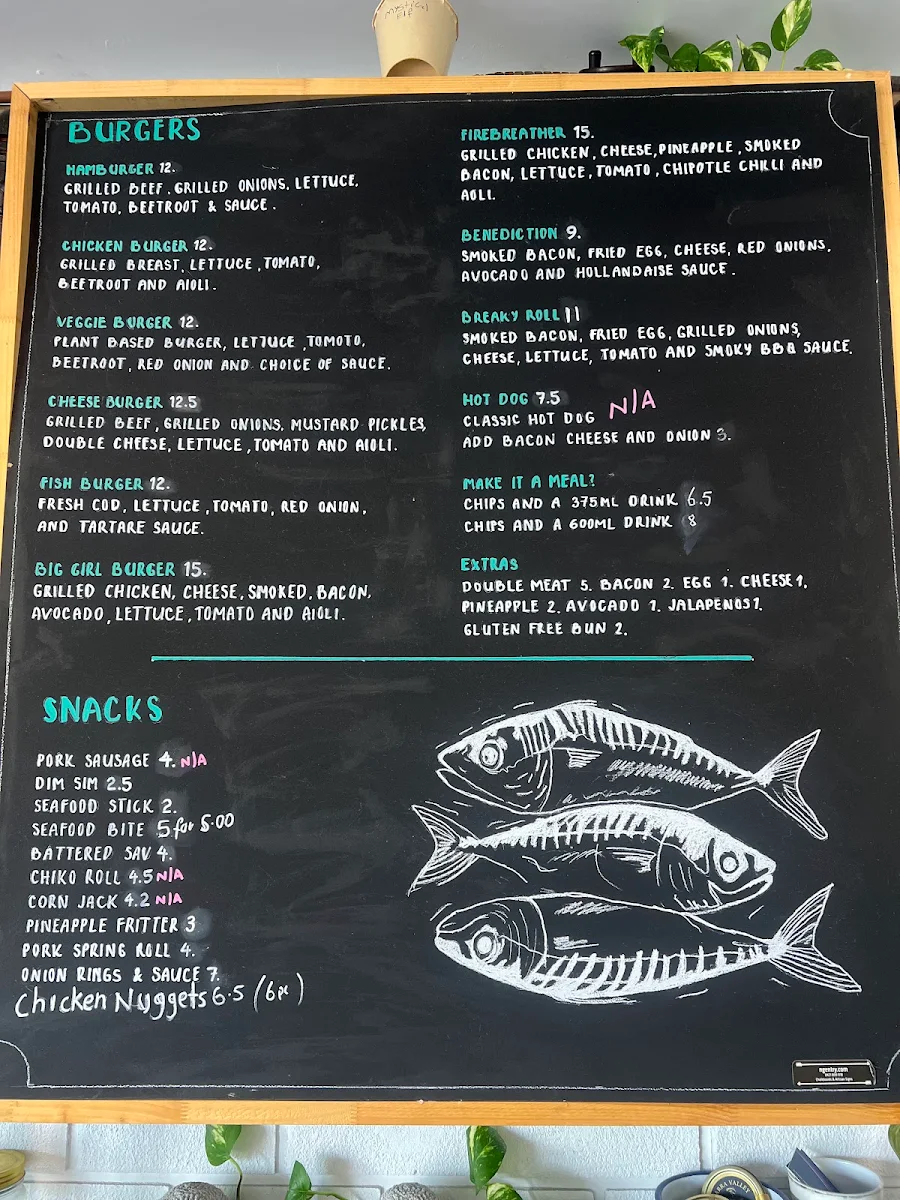 BURGERS
HAMBURGER 12.
GRILLED BEEF, GRILLED ONIONS, LETTUCE,
TOMATO, BEETROOT & SAUCE.
CHICKEN BURGER 12.
GRILLED BREAST, LETTUCE, TOMATO,
BEETROOT AND AIOLI.
VEGGIE BURGER 12.
PLANT BASED BURGER, LETTUCE, TOMOTO,
BEETROOT, RED ONION AND CHOICE OF SAUCE.
CHEESE BURGER 12.5
GRILLED BEEF, GRILLED ONIONS, MUSTARD PICKLES,
DOUBLE CHEESE, LETTUCE, TOMATO AND AIOLI.
FISH BURGER 12.
FRESH COD, LETTUCE, TOMATO, RED ONION,
AND TARTARE SAUCE.
BIG GIRL BURGER 15.
GRILLED CHICKEN, CHEESE, SMOKED, BACON,
AVOCADO, LETTUCE, TOMATO AND AIOLI.
FIREBREATHER 15.
GRILLED CHICKEN, CHEESE, PINEAPPLE, SMOKED
BACON, LETTUCE, TOMATO, CHIPOTLE CHILLI AND
AOLI.
BENEDICTION 9.
SMOKED BACON, FRIED EGG, CHEESE, RED ONIONS,
AVOCADO AND HOLLANDAISE SAUCE.
BREAKY ROLL 11
SMOKED BACON, FRIED EGG, GRILLED ONIONS,
CHEESE, LETTUCE, TOMATO AND SMOKY BBQ SAUCE.
HOT DOG 7.5
CLASSIC HOT DOG N/A
ADD BACON CHEESE AND ONION 3.
MAKE IT A MEAL?
CHIPS AND A 375ML DRINK 6.5
CHIPS AND A 600ML DRINK 8
EXTRAS
DOUBLE MEAT 5. BACON 2. EGG 1. CHEESE 1,
PINEAPPLE 2. AVOCADO 1. JALAPENOS 1.
GLUTEN FREE BUN 2.
SNACKS
PORK SAUSAGE 4. N/A
DIM SIM 2.5
SEAFOOD STICK 2.
SEAFOOD BITE 5 for 5.00
BATTERED SAV 4.
CHIKO ROLL 4.5 N/A
CORN JACK 4.2 N/A
PINEAPPLE FRITTER 3
PORK SPRING ROLL 4.
ONION RINGS & SAUCE 7.
Chicken Nuggets 6.5 (6pc)